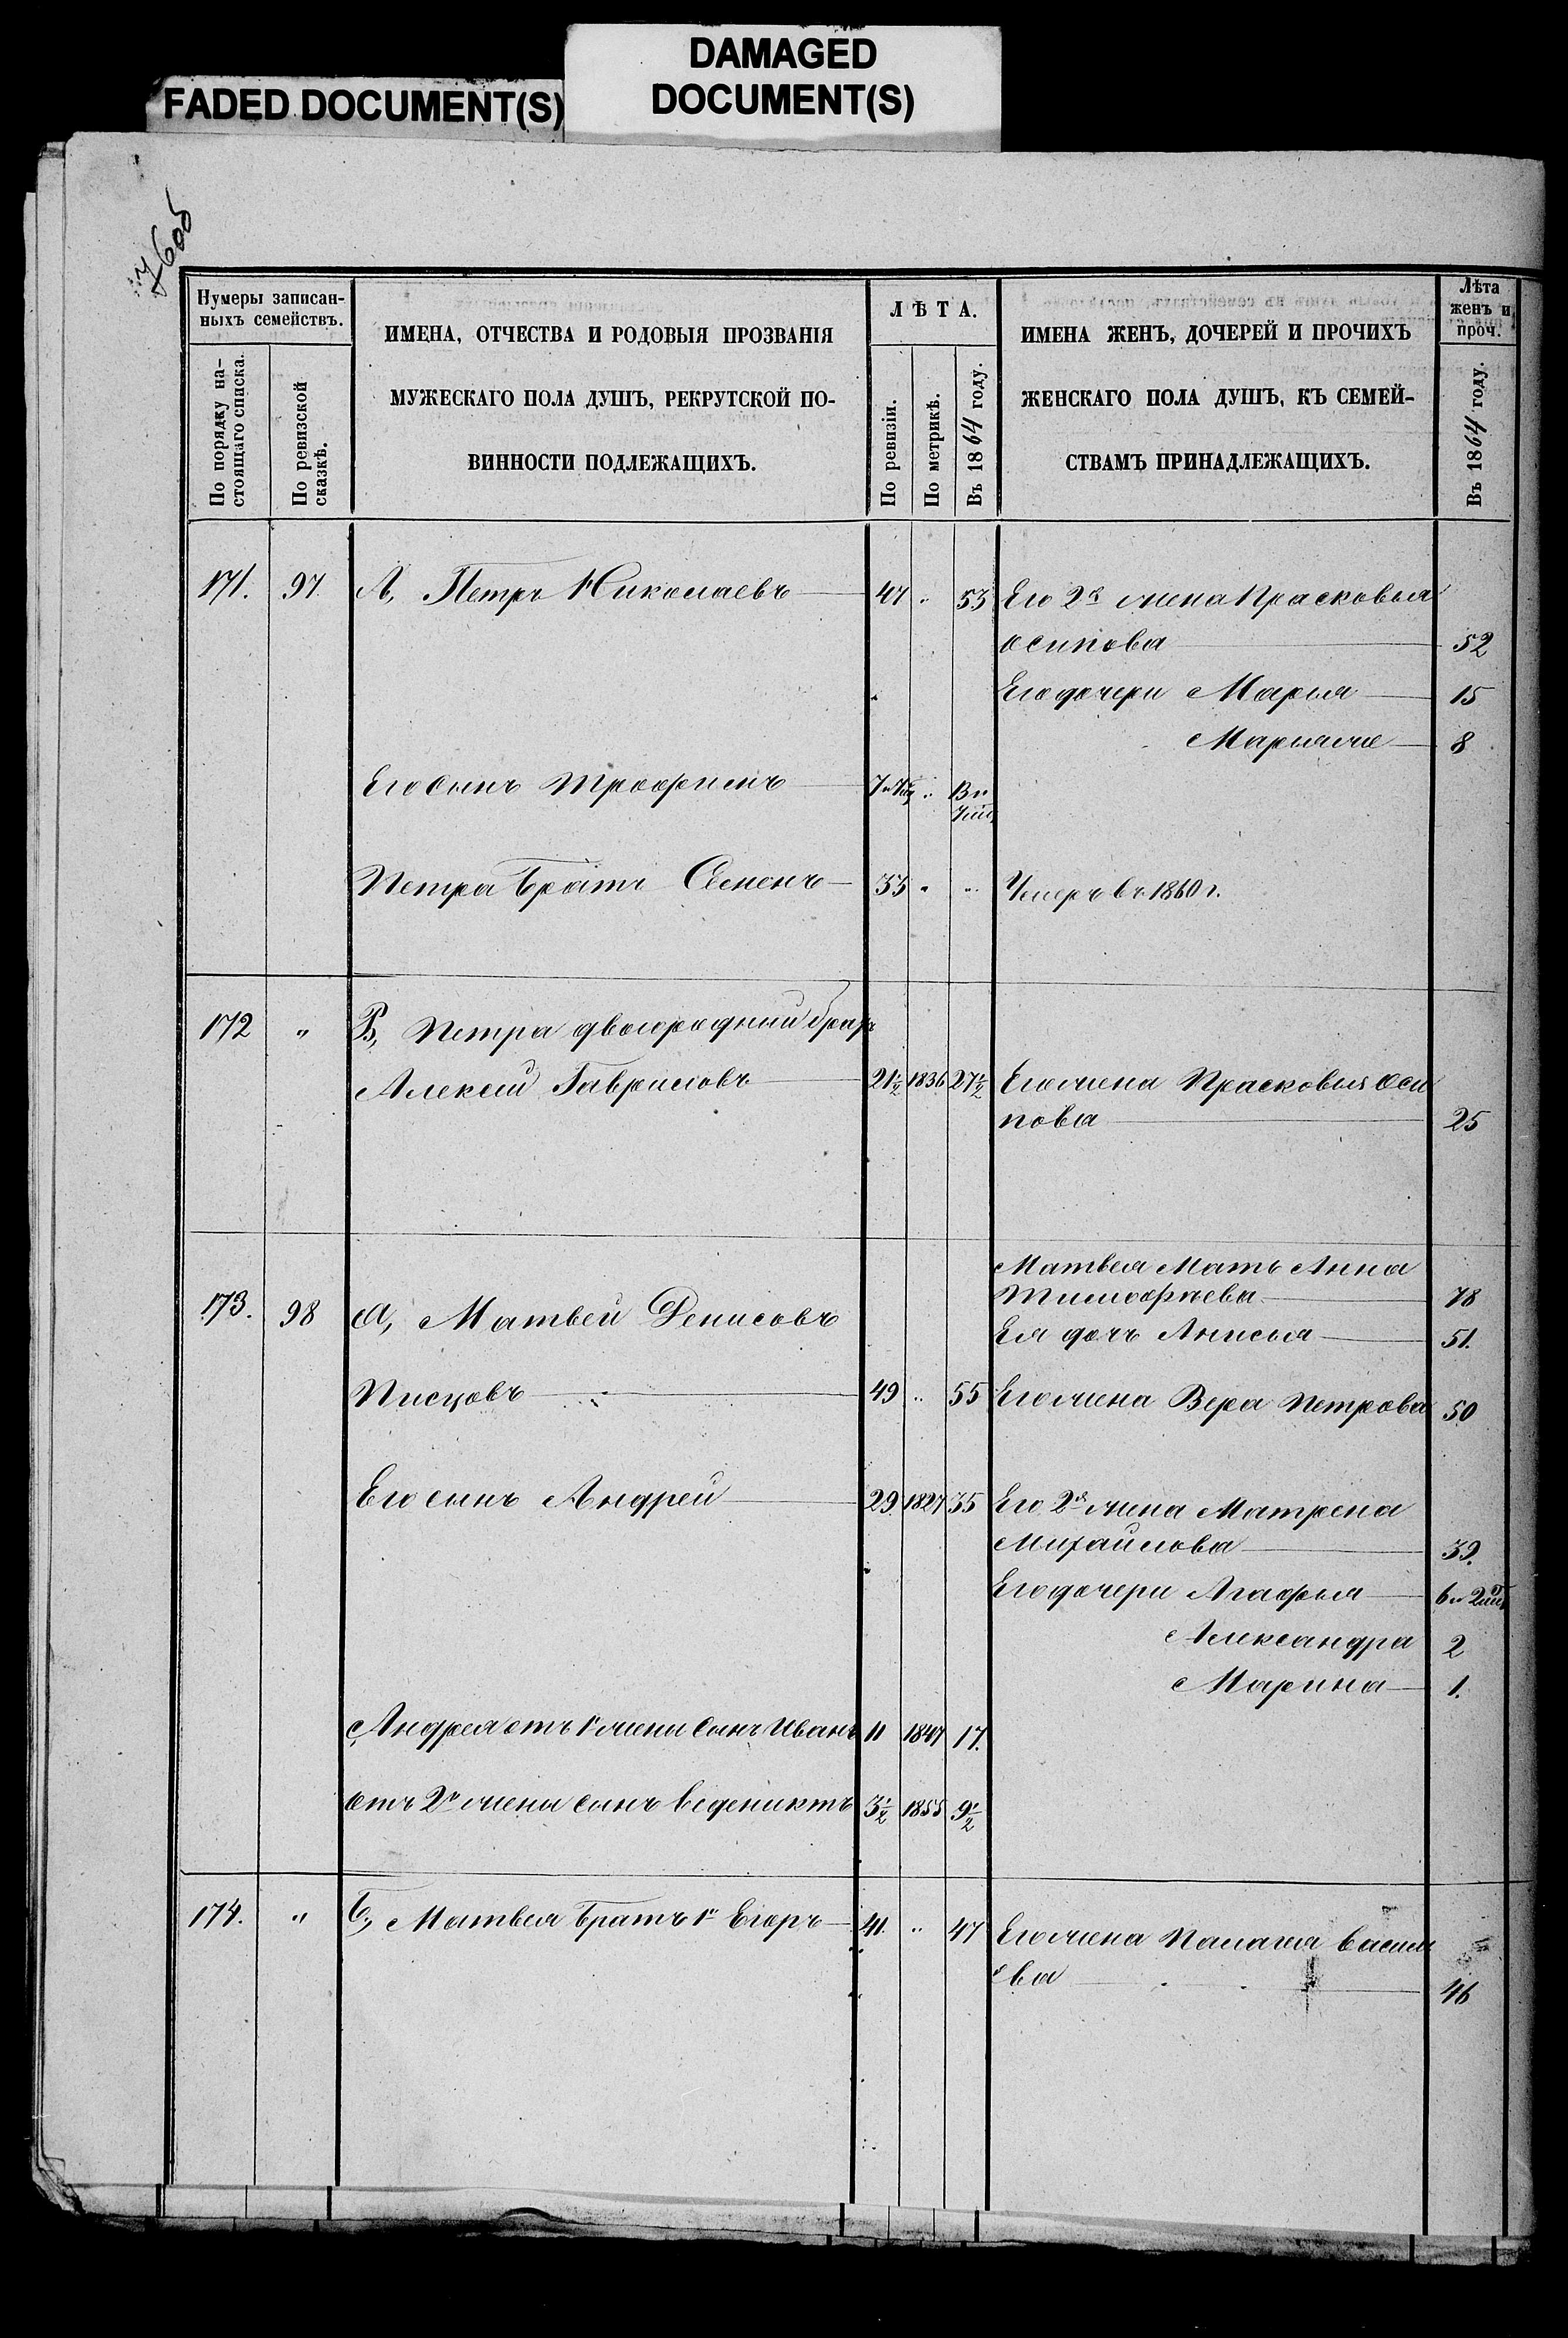 DAMAGED
DOCUMENT(S)
FADED DOCUMENT(S)
Нумеры записан-
ныхъ семействъ.
По порядку на-
стоящаго списка.
По ревизской
сказкѣ.
ИМЕНА, ОТЧЕСТВА И РОДОВЫЯ ПРОЗВАНІЯ
МУЖЕСКАГО ПОЛА ДУШЪ, РЕКРУТСКОЙ ПО-
ВИННОСТИ ПОДЛЕЖАЩИХЪ.
ЛѢТА.
По ревизіи.
По метрикѣ.
Въ 1864 году.
ИМЕНА ЖЕНЪ, ДОЧЕРЕЙ И ПРОЧИХЪ
ЖЕНСКАГО ПОЛА ДУШЪ, КЪ СЕМЕЙ-
СТВАМЪ ПРИНАДЛЕЖАЩИХЪ.
Лѣта
женъ и
проч.
Въ 1864 году.
171. 97 А, Петръ Николаевъ 47 „ 53 Его 2я жена Прасковья
осипова 52
Его дочери Марья 15
8
Его Сынъ Трофимъ „
Петра Братъ Семенъ 35 „ „ Умеръ въ 1860 г.
172 „ Петра двоюродный братъ
Алексей Гавриловъ 21½ 1836 27½ Его жена Прасковья Оси
пова 25
Матвея Мать Анна
Тимофеева 78
173. 98 а, Матвей Денисовъ
Ея дочь Анисья 51.
Писцовъ 49 „ 55 Его жена Вера Петрова 50
Его сынъ Андрей 29 1827 35 Его 2я жена Матрена
Михайлова 39.
Его дочери Агафья
Александра 2
Марина 1.
Андрея отъ 1й жены Сынъ Иванъ 11 1847 17.
отъ 2й жены сынъ Ведениктъ 3½ 1855 9½
174. „ Б, Матвея Братъ 1й Егоръ 41. „ 47 Его жена Палагея Василь
ева 46